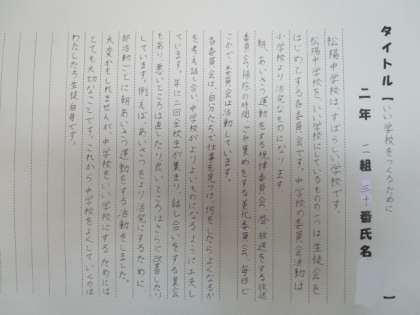 タイトル【いい学校をつくるために】
二年 二組 三十番氏名
松陽中学校は、すばらしい学校です。
松陽中学校をいい学校にしているものの一つは生徒会を
はじめてする各委員会です。中学校の委員会活動は
小学校より活発なものになります
朝、あいさつ運動をする 委員会、昼、放送をする放送
委員会、掃除の時間、ゴミ集めをする美化委員会、毎日ど
こかで、委員会は活動しています。
各委員会は、自分たちで仕事を見つけ、何をしたらよくなるか
を考え話し合い中学校がよりよいものになるように工夫し
ています。年に二回全校生が集まり、話し合いをする集会
もあり悪いところは直したり良いところはさらに改善したり
しています。例えば、あいさつをより活発にするために
部活動ごとに朝あいさつ運動をする活動をしました。
大変かもしれませんが、中学校をいい学校にするためには
とても大切なことです。これから中学校をよくしていくのは
わたしたち生徒自身です。